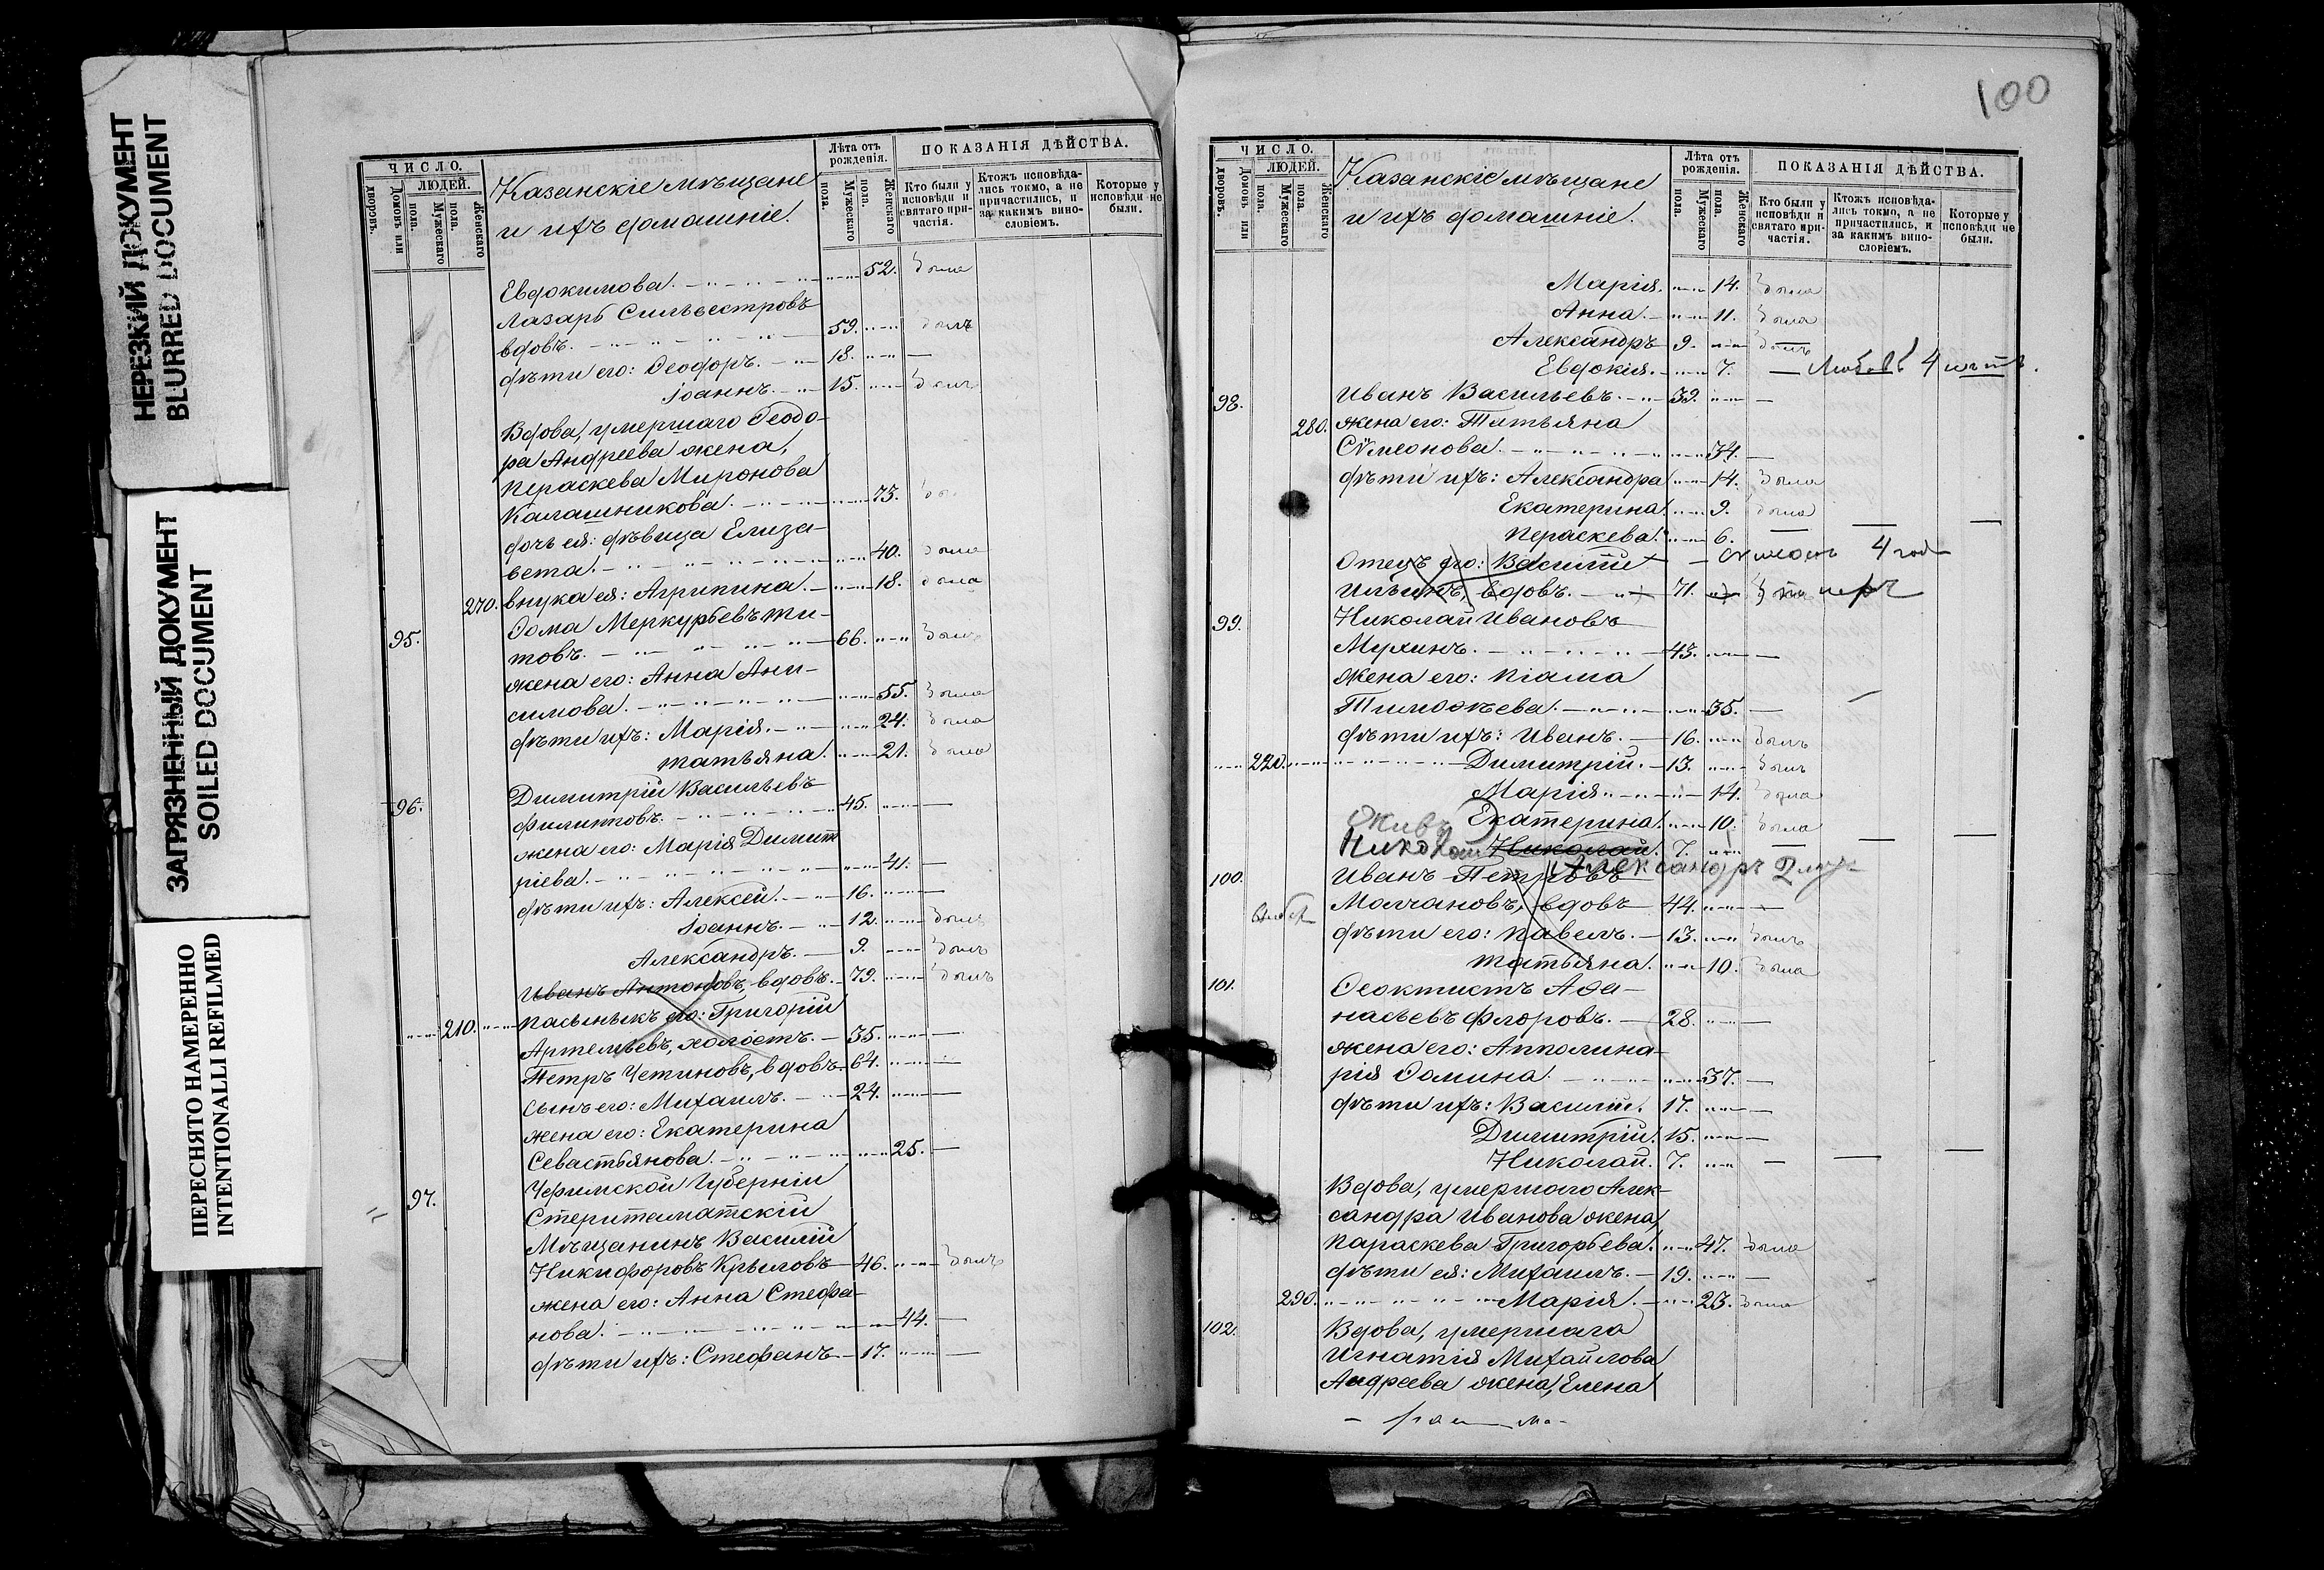 НЕРЕЗКИЙ ДОКУМЕНТ
BLURRED DOCUMENT
ЗАГРЯЗНЕННЫЙ ДОКУМЕНТ
SOILED DOCUMENT
ПЕРЕСНЯТО НАМЕРЕННО
INTENTIONALLI REFILMED
ЧИСЛО.
ЛЮДЕЙ.
Домовъ или дворовъ.
Мужескаго пола.
Женскаго пола.
Казанскіе мѣщане
и ихъ домашніе.
Лѣта отъ рожденія.
Мужескаго пола.
Женскаго пола.
ПОКАЗАНІЯ ДѢЙСТВА.
Кто были у исповѣди и святаго причастія.
Ктожъ исповѣдались токмо, а не причастились, и за какимъ винословіемъ.
Которые у исповѣди не были.
Евдокимова. 52. была
Лазарь Сильвестровъ
вдовъ. 59. былъ
дѣти его: Ѳеодоръ. 18. —
Іоаннъ. 15. былъ
Вдова, умершаго Ѳеодо-
ра Андреева жена,
Пераскева Миронова
Калашникова. 73.
дочь ея: дѣвица Елиза-
вета. 40. была
270. внука ея: Агрипина. 18. была
95. Ѳома Меркурьевъ Ти-
товъ. 66. былъ
жена его: Анна Ани-
симова. 55. была
дѣти ихъ: Марія. 24. была
Татьяна. 21. была
96. Димитрій Васильевъ
Филипповъ. 45. —
жена его: Марія Димит
ріева. 41. —
дѣти ихъ: Алексей. 16. —
Іоаннъ. 12. былъ
Александръ. 9. былъ
Иванъ Антоновъ, вдовъ. 79. былъ
210. пасыныкъ его: Григорій
Артемьевъ, холостъ. 35. —
Петръ Устиновъ, вдовъ 64. —
сынъ его: Михаилъ. 24. —
жена его: Екатерина
Севастьянова. 25. —
97. Уфимской Губерніи
Стерлитаматскій
Мѣщанинъ Василій
Никифоровъ Крыловъ 46. былъ
жена его: Анна Стефа-
нова. 44. —
дѣти ихъ: Стефанъ 17. —
100
ЧИСЛО.
ЛЮДЕЙ.
Домовъ или дворовъ.
Мужескаго пола.
Женскаго пола.
Казанскіе мѣщане
и ихъ домашніе.
Лѣта отъ рожденія.
Мужескаго пола.
Женскаго пола.
ПОКАЗАНІЯ ДѢЙСТВА.
Кто были у исповѣди и святаго причастія.
Ктожъ исповѣдались токмо, а не причастились, и за какимъ винословіемъ.
Которые у исповѣди не были.
Марія. 14. была
Анна. 11. была
Александръ 9. былъ
Евдокія. 7. — Любовь 4 лѣтъ.
98. Иванъ Васильевъ. 39. —
280. жена его: Татьяна
Сѵмеонова. 34. —
дѣти ихъ: Александра 14. была
Екатерина. 9. была
Пераскева. 6. — — —
Отецъ его: Василій Симеонъ 4 год
Ильинъ, вдовъ. 71. померъ
99. Николай Ивановъ
Мухинъ. 43. —
жена его: Піама
Тимоѳѣева. 35. —
дѣти ихъ: Иванъ. 16. былъ
220. Димитрій. 13. былъ
Марія 14. была
живъ Екатерина. 10. была
Николай Николай. 7. — — —
100. Иванъ Петровъ Александръ 2
Молчановъ, вдовъ 44. —
дѣти его: Павелъ. 13. былъ
Татьяна. 10. была
101. Ѳеоктистъ Аѳа-
насьевъ Флоровъ. 28. —
жена его: Апполина-
рія Ѳомина 37. —
дѣти ихъ: Василій. 17. —
Димитрій. 15. —
Николай. 7. — — —
Вдова, умершаго Алек-
сандра Иванова жена
Параскева Григорьева. 47. была
дѣти ея: Михаилъ. 19. —
290. Марія. 23. была
102. Вдова, умершаго
Игнатія Михайлова
Андреева жена, Елена